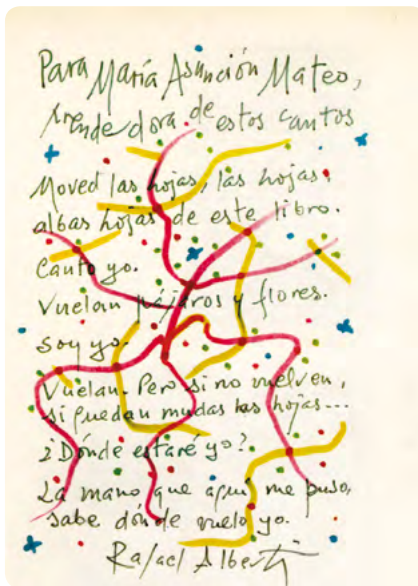 Para María Asunción Mateo,
prendedora de estos cantos
Moved las hojas, las hojas,
albas hojas de este libro.
Canto yo.
Vuelan pájaros y flores.
Soy yo.
Vuelan. Pero si no vuelven,
si quedan mudas las hojas...
¿Dónde estaré yo?
La mano que aquí me puso,
sabe dónde vuelo yo.
Rafael Alberti